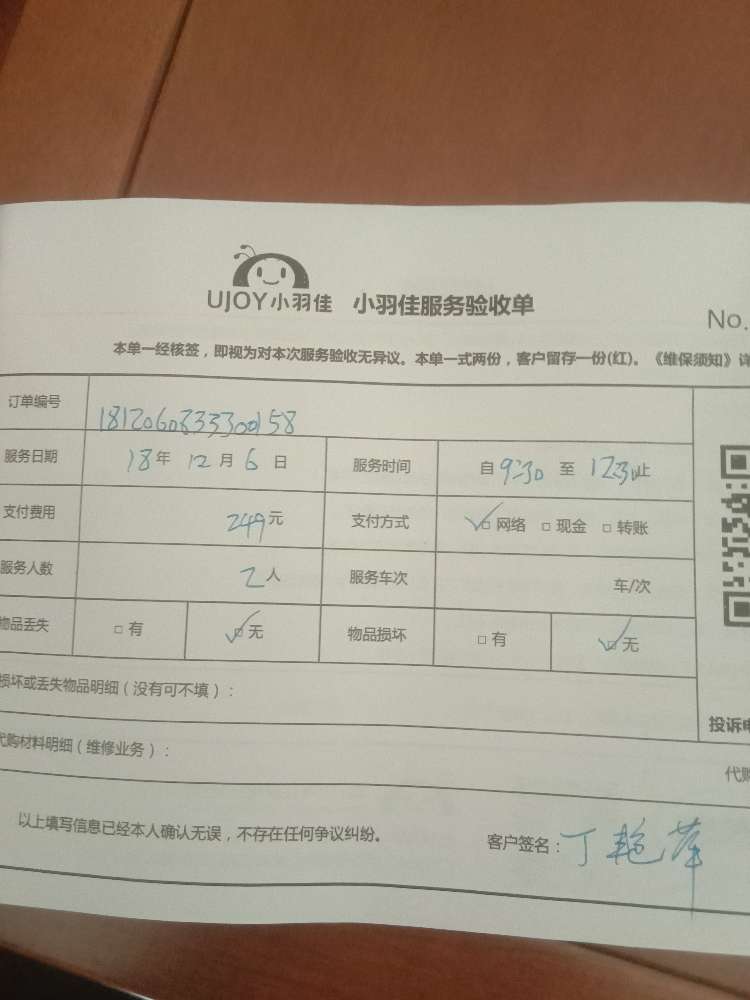 UJOY小羽佳 小羽佳服务验收单
No.
本单一经核签，即视为对本次服务验收无异议。本单一式两份，客户留存一份(红)。《维保须知》详
订单编号 1812060833300158
服务日期 18年 12月 6日 服务时间 自 9:30 至 12:30 止
支付费用 249元 支付方式 ☑网络 □现金 □转账
服务人数 2人 服务车次 车/次
物品丢失 □有 ☑无 物品损坏 □有 ☑无
损坏或丢失物品明细（没有可不填）：
投诉电
代购材料明细（维修业务）：
代购
以上填写信息已经本人确认无误，不存在任何争议纠纷。 客户签名：丁艳萍